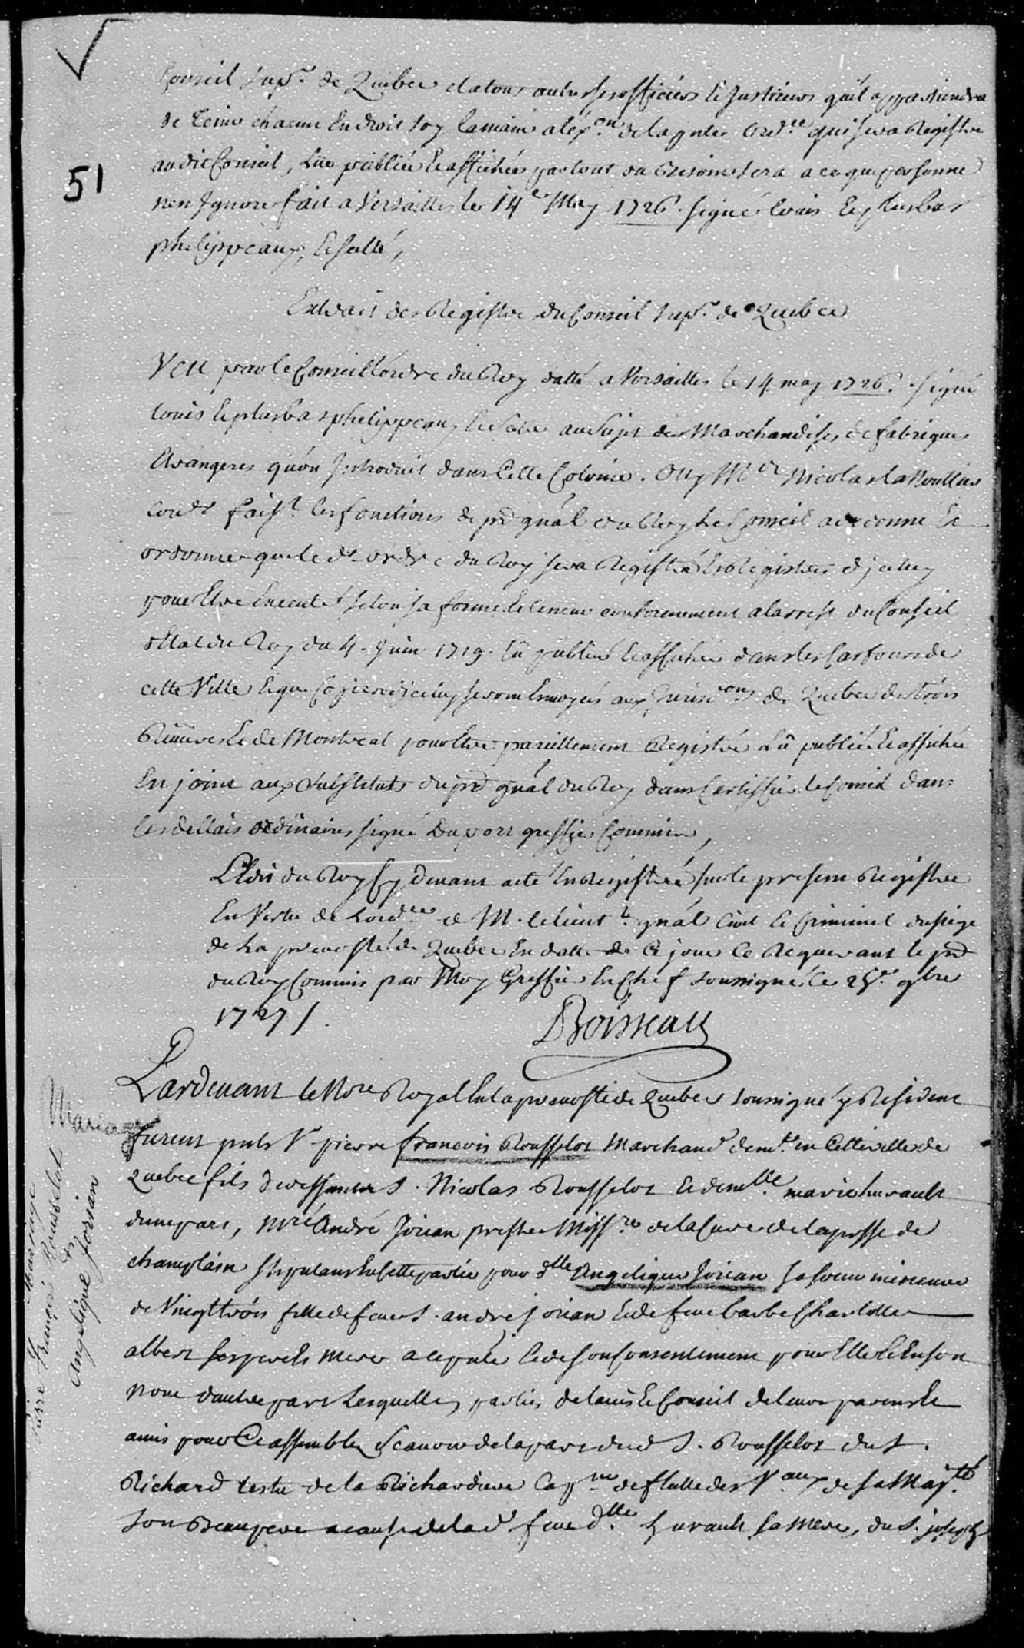 51
Conseil Supr. de Quebec et a tous autres ses officiers et Justiciers qu'il appartiendra
de tenir chacun en droit soy la main a l'ex.on de la pnte ord.ce qui sera Registrée
audit Conseil, Lue publiée et affichée partout ou besoin sera a ce que personne
n'en Ignore fait a Versailles le 14e May 1726. signé Louis et plus bas
phelippeaux, et scellé,
Extrait des Registre du Conseil Supr. de Quebec
Veu par le Conseil l'ordre du Roy datté a Versailles le 14 may 1726. signé
Louis et plus bas phelippeaux et scellé au sujet des Marchandises de fabriques
Etrangeres qu'on Introduit dans cette Colonie. Ouy Me Nicolas Lanoullier
con.er fais.t les fonctions de pr gnal du Roy le Conseil a ordonné et
ordonne que le d. ordre du Roy sera Registré Es Registres d'iceluy
pour Etre Executé selon sa forme et teneur conformement a l'arrest du Conseil
d'Etat du Roy du 4. Juin 1719. lû publié et affiché dans les Carfours de
cette Ville et que copies d'iceluy seront Envoyés aux Jurisd.ons de Quebec des trois
Rivieres et de Montreal pour Etre pareillement Registré Lû publié et affiché
Enjoint aux substituts du pr gnal du Roy d'en Certiffier le Conseil dans
les dellais ordinaires signé Duport greffier Commis,
L'Edit du Roy cy devant a eté Enregistré sur le present Registre
En Vertu de L'ord.ce de M. le lieut.t gnal Civil et Criminel du siege
de la prevosté de Quebec En datte de ce jour Ce Requerant le pr
du Roy Commis par Moy Greffier En Chef soussigné le 25e. 9bre
1727 /.
Boisseau
Pardevant le No.re Royal En la prevosté de Quebec soussigné y Resident
furent pnts Sr. pierre francois Rousselot Marchand dem.t en Cette ville de
Quebec fils de deffunts S. Nicolas Rousselot et dem.lle marie hurault
d'une part, Mre André Jorian prestre Miss.re de la Cure de la posse de
champlain stipulant En Cette partie pour d.lle Angelique Jorian sa soeur mineure
de Vingt trois fille de feu S. andré jorian et de feue barbe Charlotte
albert ses pere et mere a ce pnte et de son Consentement pour Elle et En son
nom d'autre part Lesquelles parties de l'avis et Conseil de leurs parens et
amis pour Ce assemblez scavoir de la part dud. S. Rousselot du S.
Richard testu de la Richardiere Cap.ne de flutte des V.aux de sa Maj.té
son Beaupere a cause de lad. feue d.lle hurault sa mere, du S. joseph
Mariage
Mariage
Pierre François Rousselot
Et
Angelique Jorian